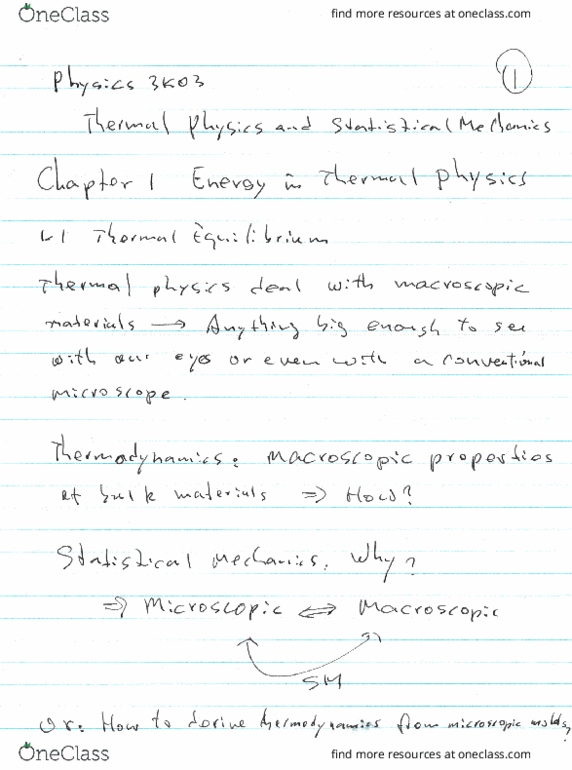 OneClass find more resources at oneclass.com
①
Physics 3K03
Thermal Physics and Statistical Mechanics
Chapter 1 Energy in Thermal Physics
1.1 Thermal Equilibrium
Thermal physics deal with macroscopic
materials → Anything big enough to see
with our eyes or even with a conventional
microscope.
Thermodynamics: Macroscopic properties
of bulk materials ⇒ How?
Statistical Mechanics: Why?
⇒ Microscopic ⇔ Macroscopic
SM
Or: How to derive thermodynamics from microscopic
OneClass find more resources at oneclass.com